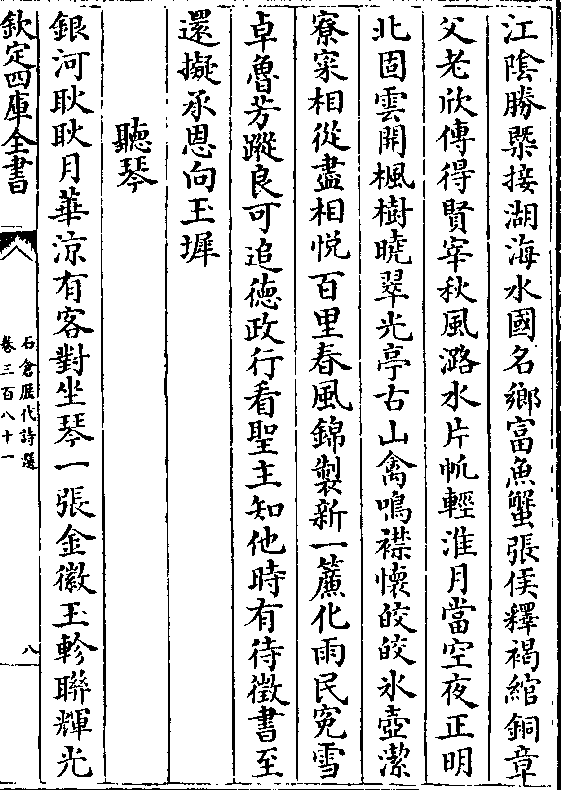 江陰勝槩接湖海水國名鄉富魚蟹張侯釋褐綰銅章
父老欣傳得賢宰秋風潞水片帆輕淮月當空夜正明
北固雲開楓樹曉翠光亭古山禽鳴襟懷皎皎氷壺潔
寮寀相從盡相悅百里春風錦製新一簾化雨民寃雪
卓魯芳蹤良可追德政行看聖主知他時有待徵書至
還擬承恩向玉墀
聽琴
銀河耿耿月華凉有客對坐琴一張金徽玉軫聯輝光
欽定四庫全書
石倉歷代詩選
卷三百八十一
八